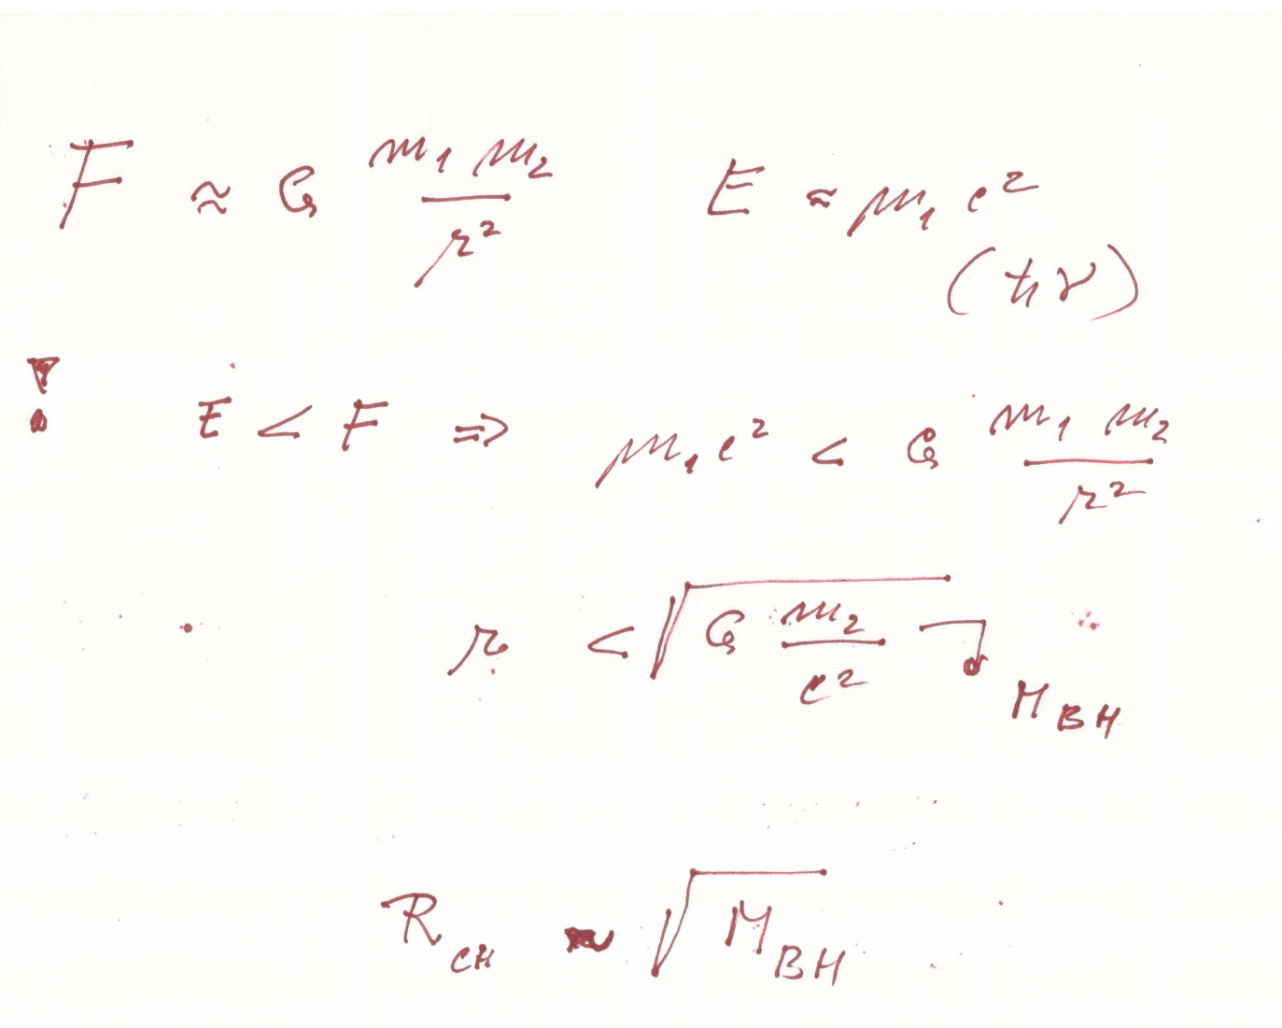 F ≈ G m₁ m₂ / r² E ≈ m₁ c²
(ħν)
! E < F ⇒ m₁ c² < G m₁ m₂ / r²
r < √(G m₂ / c²) M_BH
R_CH ~ √M_BH